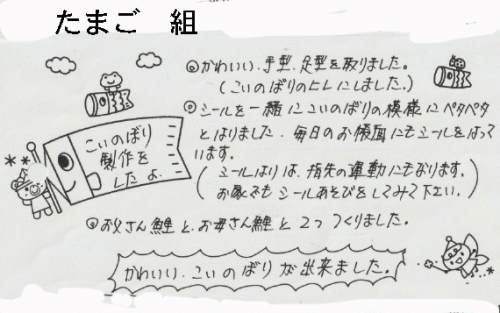 たまご 組
こいのぼり
製作を
したよ。
◎かわいい、手型、足型を取りました。
(こいのぼりのヒレにしました。)
◎シールを一緒にこいのぼりの模様にペタペタ
とはりました。毎日のお帳面にもシールをはって
います。
(シールはりは、指先の運動にもなります。
お家でもシールあそびをしてみて下さい。)
◎お父さん鯉と、お母さん鯉と2つつくりました。
かわいい、こいのぼりが出来ました。